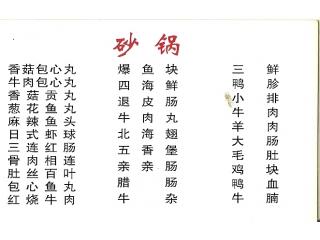 砂锅
香菇包心丸
牛肉包心丸
香菇贡丸
葱花鱼丸
麻辣鱼头
日式虾球
三连红肠
骨肉相连
肚丝百叶
包心鱼丸
红烧牛肉
爆鱼块
四海鲜
退皮肠
牛肉丸
北海翅
五香堡
亲亲肠
腊肠
牛杂
三鲜
鸭胗
小排
牛肉
羊肉
大肠
毛肚
鸡块
鸭血
牛腩